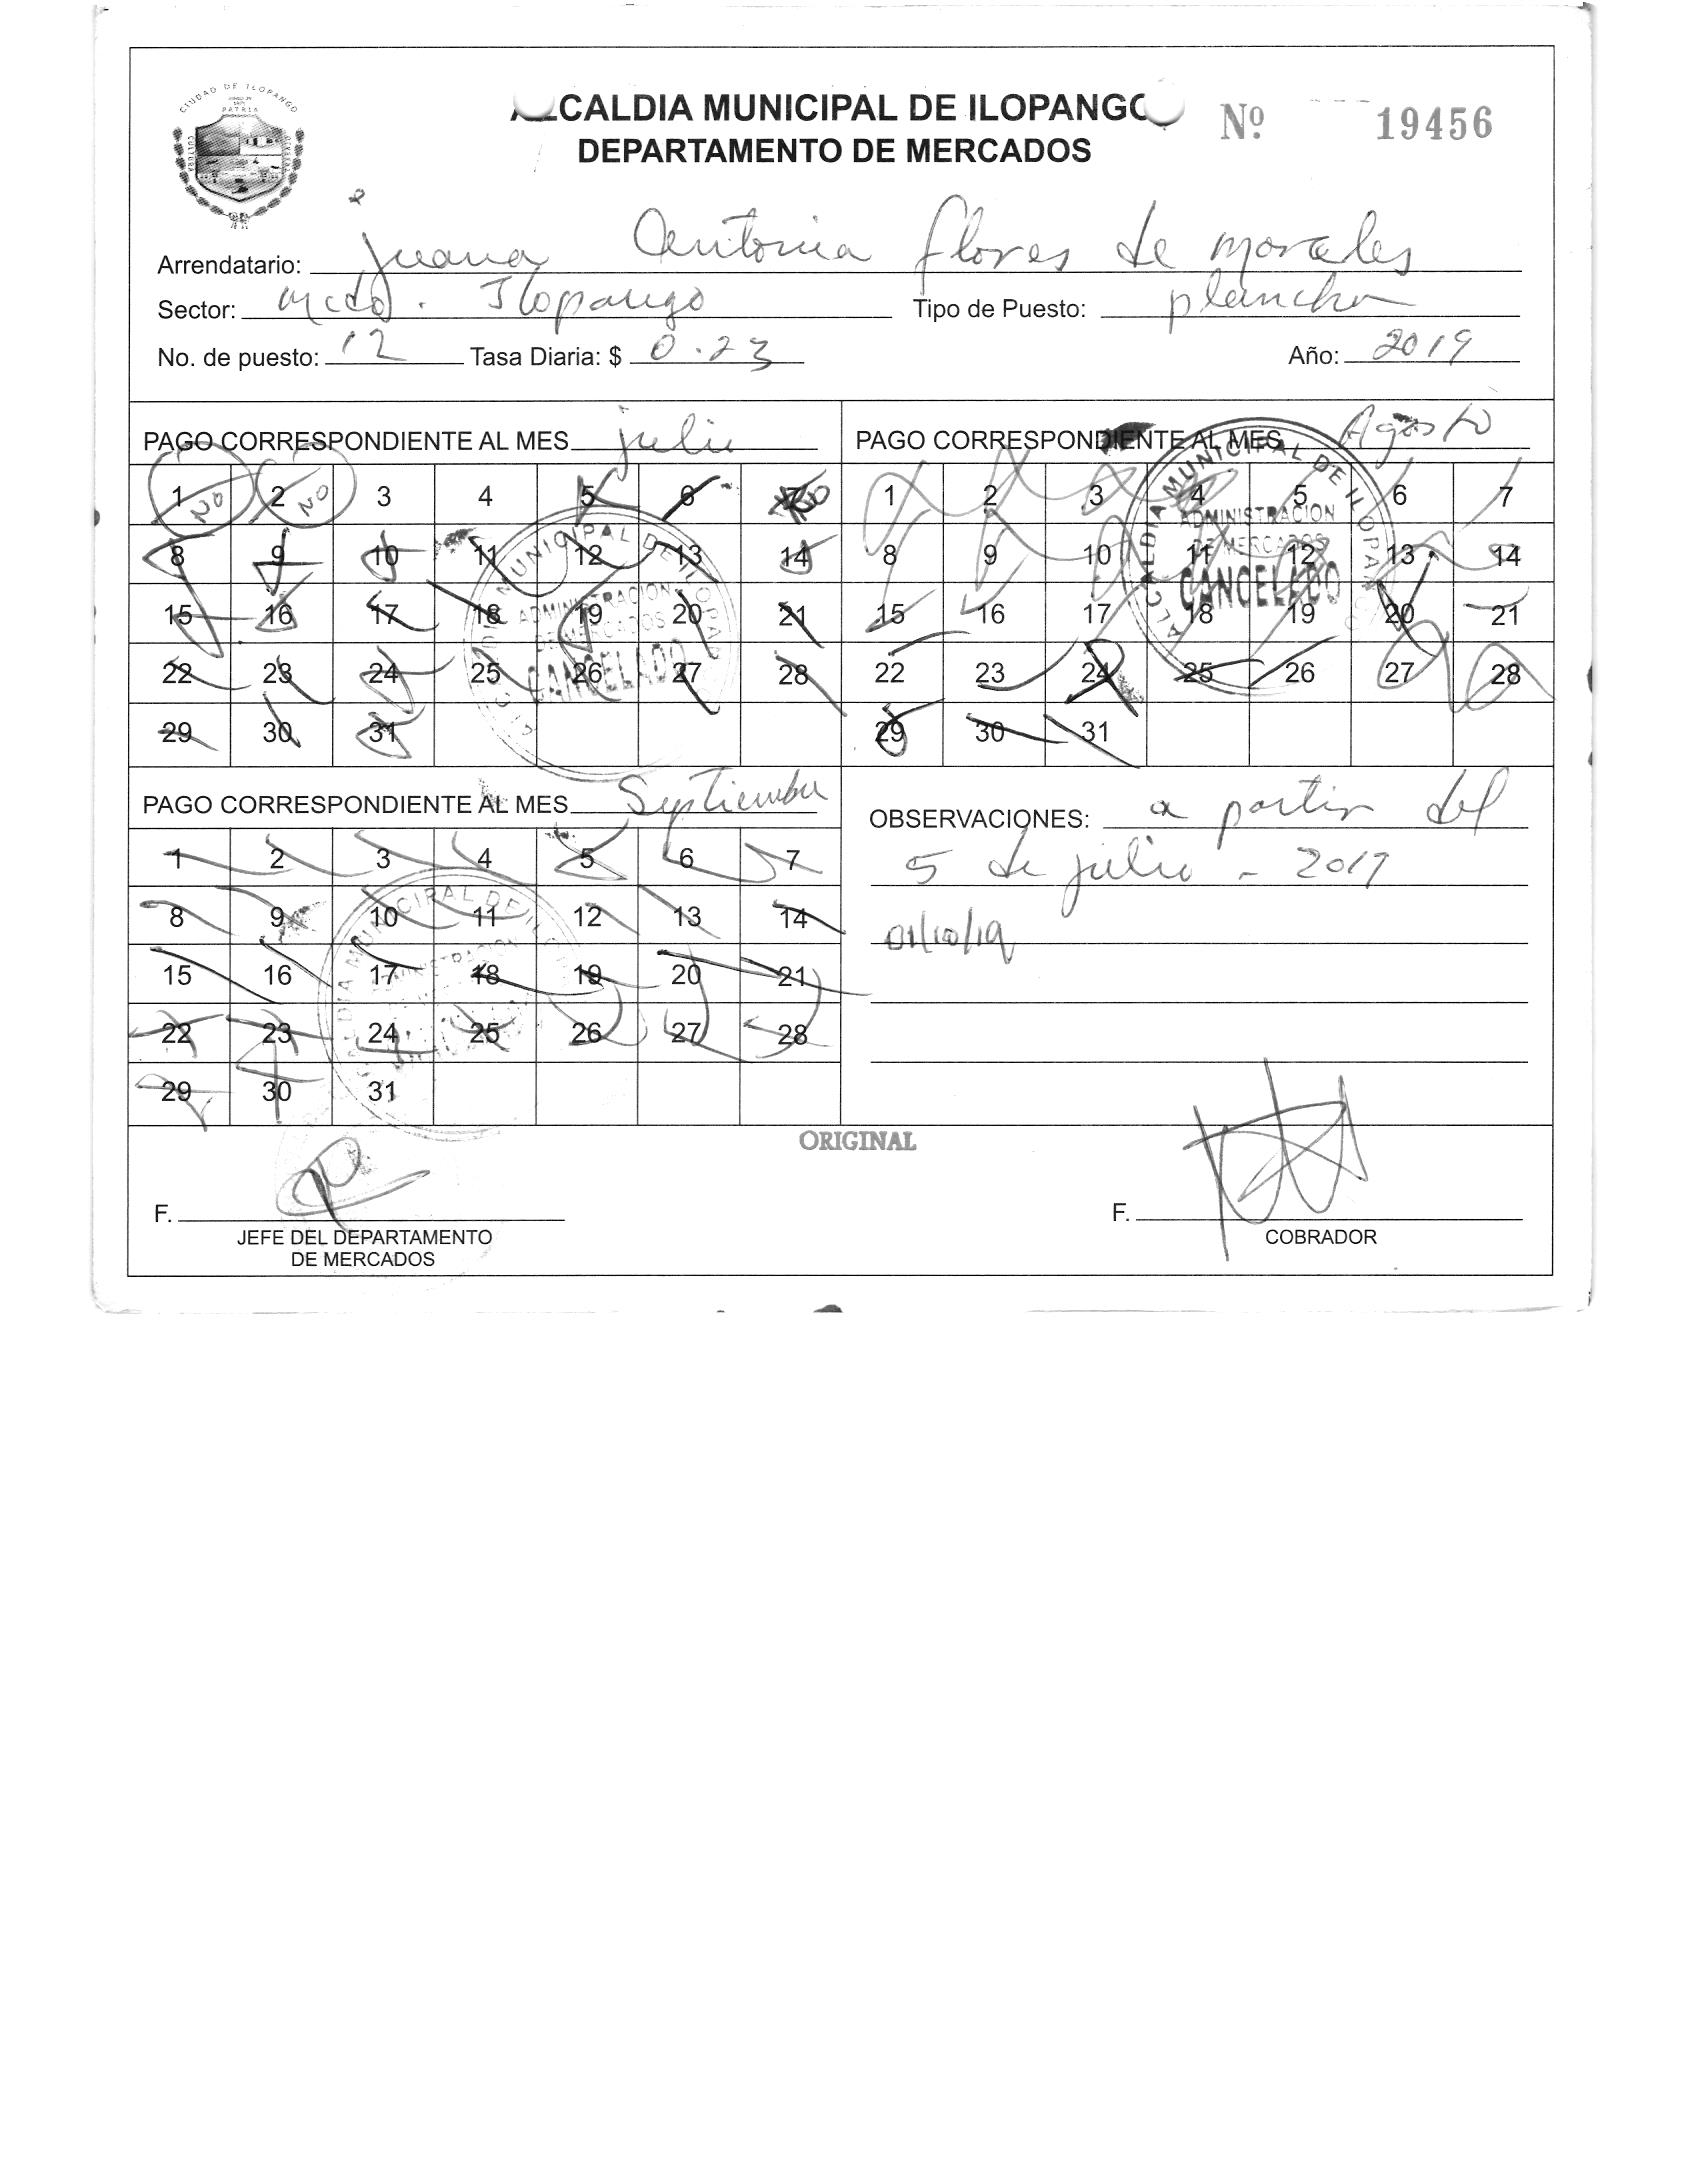 CIUDAD DE ILOPANGO
PATRIA
CULTURA
ALCALDIA MUNICIPAL DE ILOPANGO
Nº 19456
DEPARTAMENTO DE MERCADOS
Arrendatario: juana Antonia flores de morales
Sector: Mcdo. Ilopango Tipo de Puesto: plancha
No. de puesto: 12 Tasa Diaria: $ 0.23 Año: 2019
PAGO CORRESPONDIENTE AL MES julio
1 NO 2 NO 3 4 5 6 7
8 9 10 11 12 13 14
15 16 17 18 19 20 21
22 23 24 25 26 27 28
29 30 31
ALCALDIA MUNICIPAL DE ILOPANGO
ADMINISTRACION
DE MERCADOS
CANCELADO
PAGO CORRESPONDIENTE AL MES Agosto
1 2 3 4 5 6 7
8 9 10 11 12 13 14
15 16 17 18 19 20 21
22 23 24 25 26 27 28
29 30 31
ALCALDIA MUNICIPAL DE ILOPANGO
ADMINISTRACION
DE MERCADOS
CANCELADO
PAGO CORRESPONDIENTE AL MES Septiembre
1 2 3 4 5 6 7
8 9 10 11 12 13 14
15 16 17 18 19 20 21
22 23 24 25 26 27 28
29 30 31
OBSERVACIONES: a partir del
5 de julio - 2019
01/10/19
ORIGINAL
F. F.
JEFE DEL DEPARTAMENTO
DE MERCADOS
COBRADOR